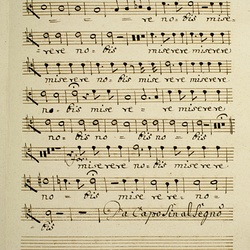 re nobis mise=
=rere no= bis miserere miserere
miserere nobis miserere miserere
no= bis miserere miserere
no= bis no= bis no= bis
miserere miserere no=
no= bis miserere no=
bis Da Capo Sin al Segno